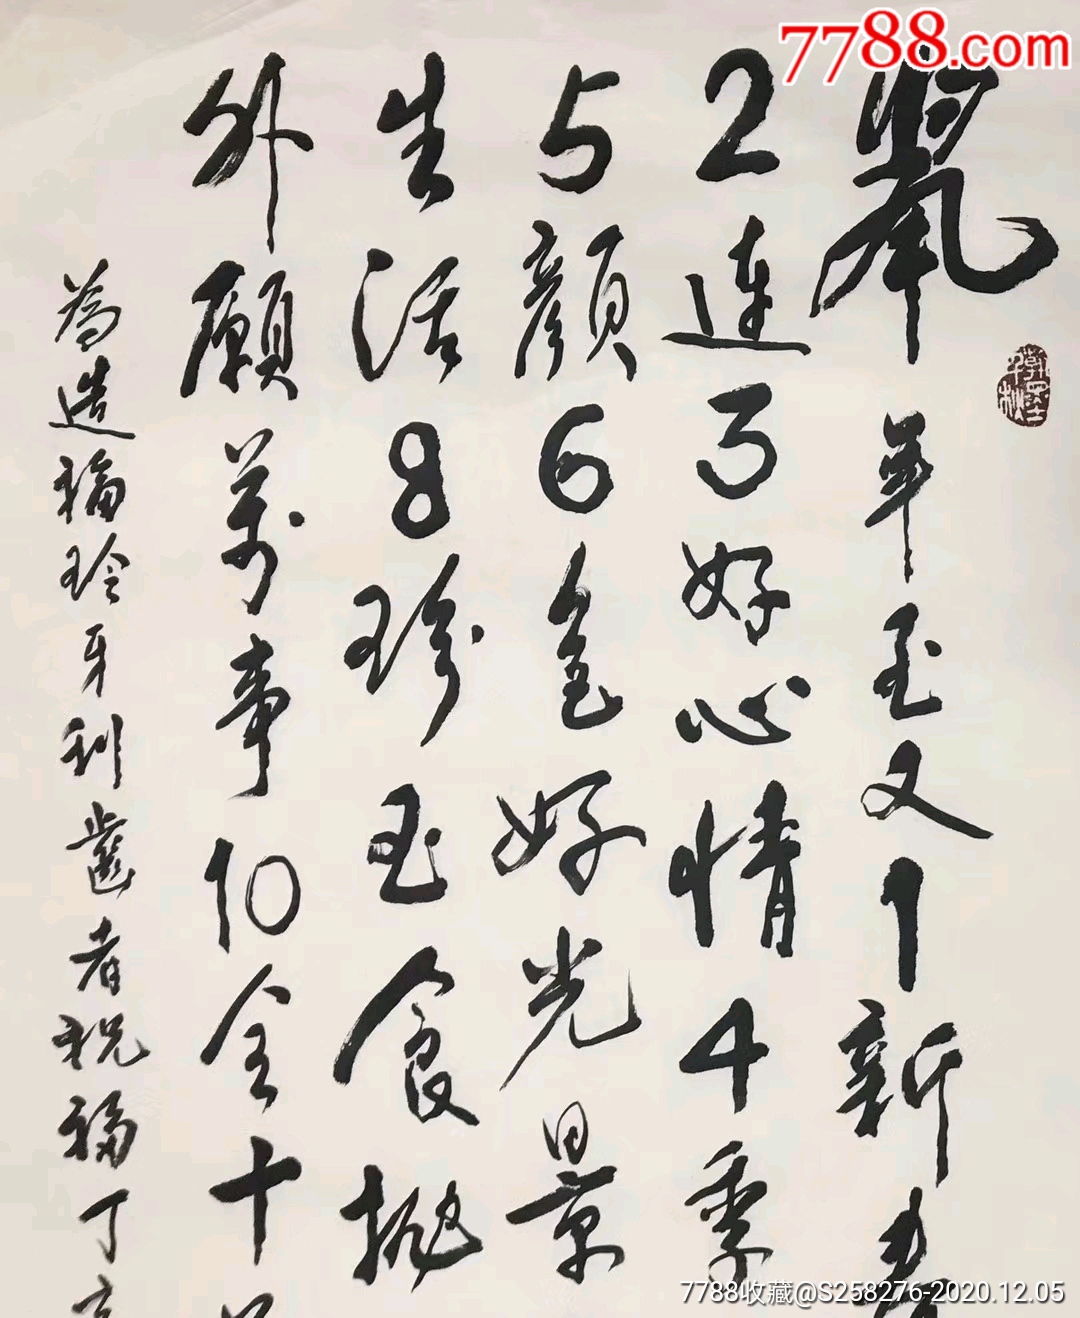 年至又1新春
2连3好心情4季
5颜6色好光景
生活8珍玉食抛
外愿万事10全十
为造福玲牙利齿者祝福丁亥
7788.com
7788收藏@S258276-2020.12.05